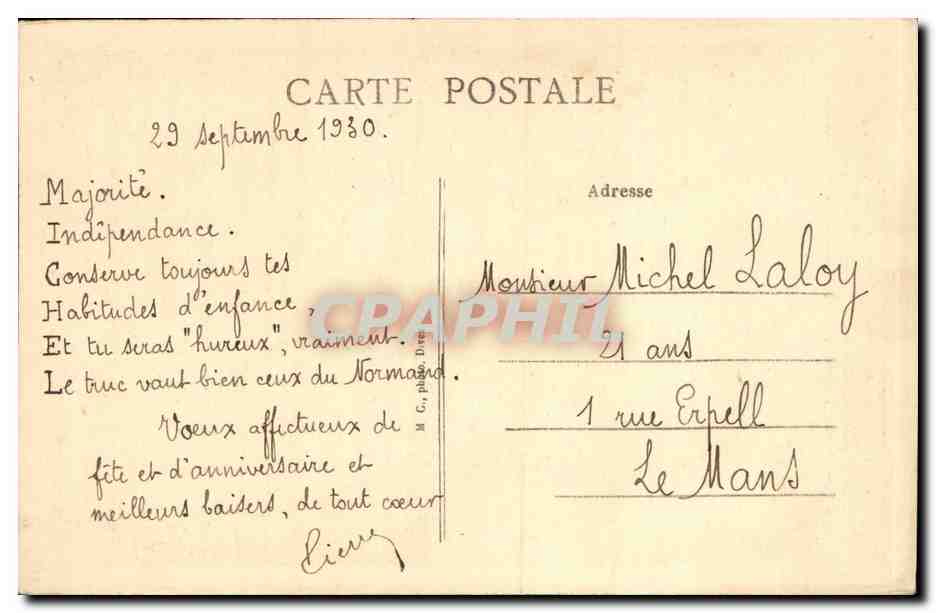 CARTE POSTALE
29 septembre 1930.
Majorité.
Indépendance.
Conserve toujours tes
Habitudes d'enfance,
Et tu seras "hureux", vraiment.
Le truc vaut bien ceux du Normand.
Voeux affectueux de
fête et d'anniversaire et
meilleurs baisers, de tout coeur
Pierre
M G., photo,
Adresse
Monsieur Michel Laloy
21 ans
1 rue Erpell
Le Mans
CPAPHIL